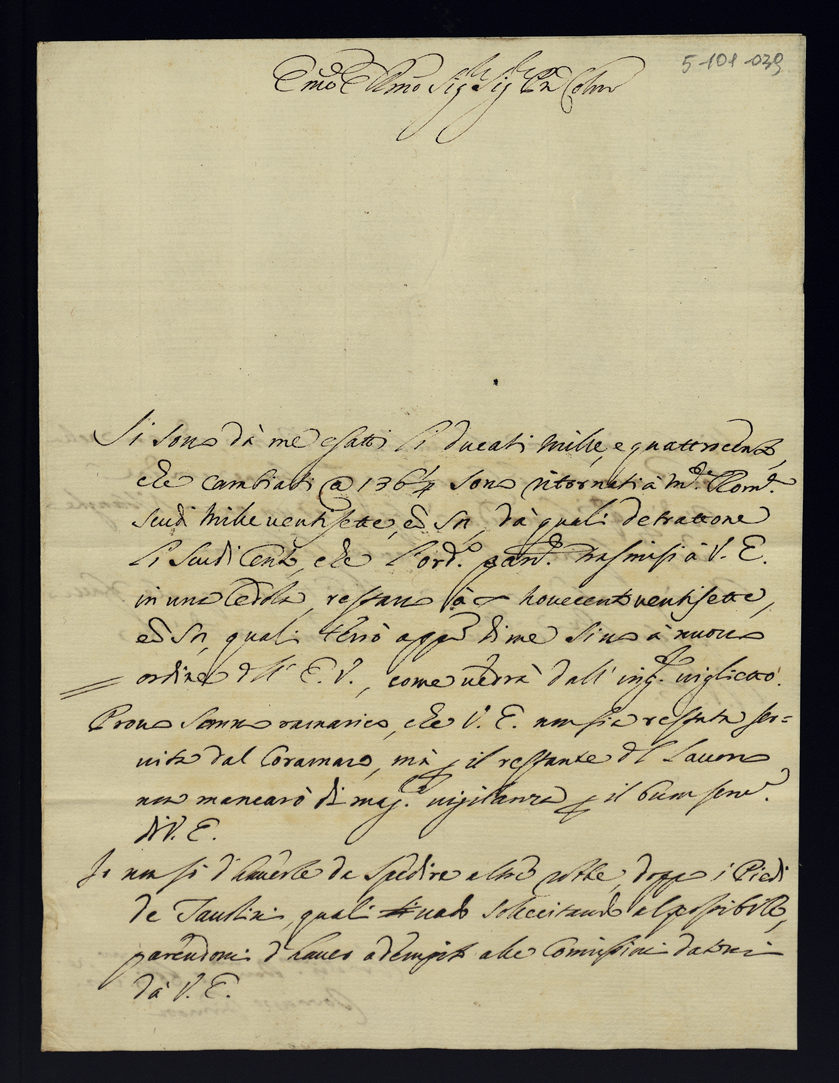 5-101-039
Ecc.mo Ill.mo Sig.r Sig.r P.ron Col.mo
Si sono dà me esatti li ducati mille, e quattrocento,
che cambiati @ 136¼ sono ritornati à m.ta Rom.a
scudi mille ventisette, e d 50, dà quali detrattone
li scudi Cento, che l'ord.o pas.o trasmisi à V. E.
in una Cedola, restano novecento ventisette,
e d 50, quali terrò app.o di me sino à nuovo
ordine dell' E. V., come vedrà dall' ing.o viglietto.
Provo sommo ramarico, che V. E. non sia restata ser=
vita dal Coramaro, mà p il restante del lavoro
non mancarò di mag.r vigilanza p il buon serv.o
di V. E.
Io non sò d'haverle da spedire altre robbe, doppo i Piedi
de Taulini, quali vado sollecitando al possibile,
parendomi d'haver adempito alle Comissioni datemi
dà V. E.